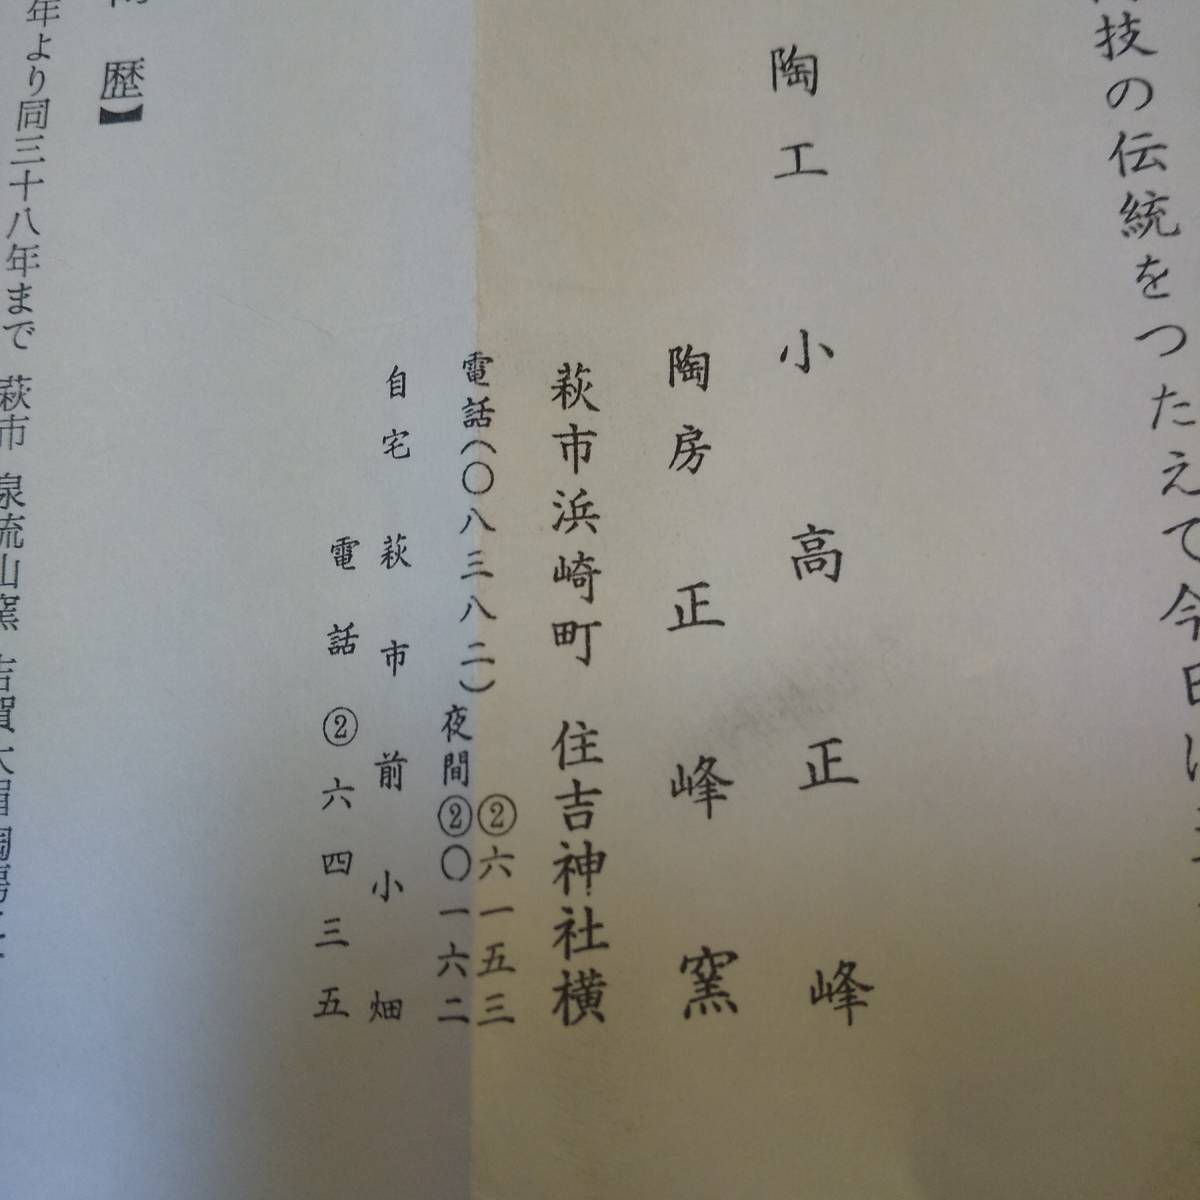 技の伝統をつたえて今日
陶工 小高正峰
陶房 正峰窯
萩市浜崎町 住吉神社横
電話(〇八三八二)②六一五三
夜間②〇一六二
自宅 萩市前小畑
電話②六四三五
歴】
年より同三十八年まで 萩市 泉流山窯 吉賀大眉